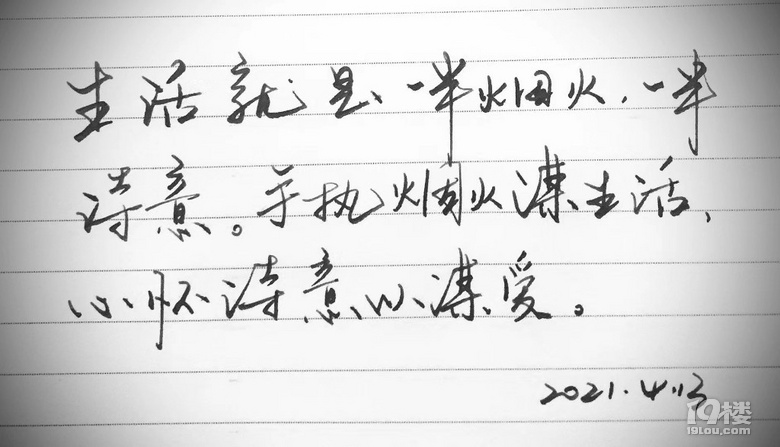 生活就是、一半烟火，一半
诗意。手执烟火谋生活，
心怀诗意以谋爱。
2021.4.13
19楼
19lou.com